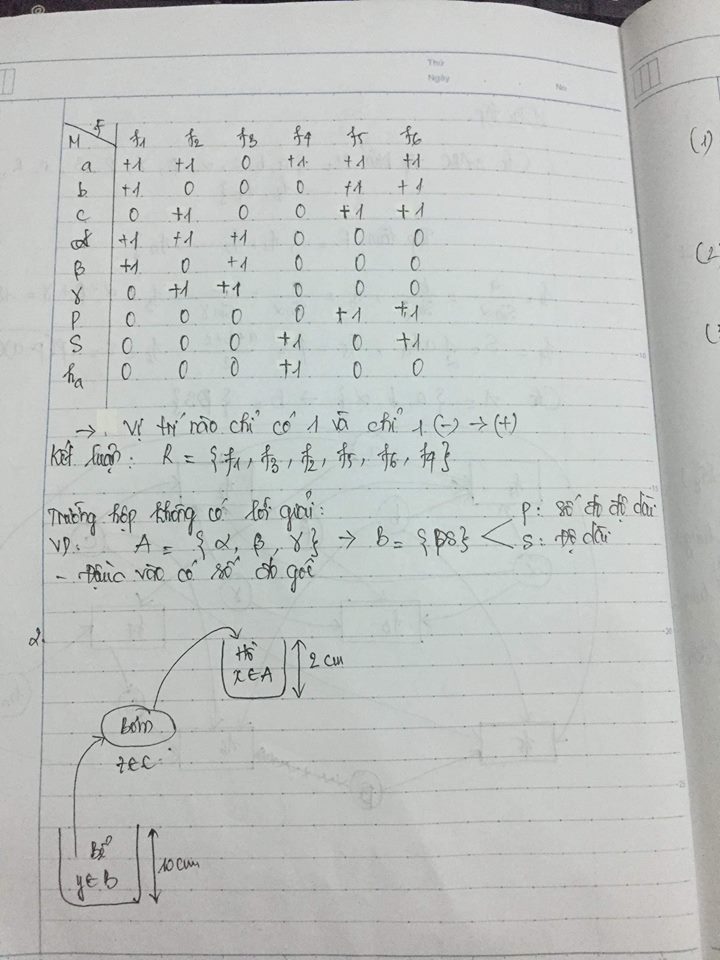 Thứ
Ngày
No
M f f1 f2 f3 f4 f5 f6
a +1 +1 0 +1 +1 +1
b +1 0 0 0 +1 +1
c 0 +1 0 0 +1 +1
α +1 +1 +1 0 0 0
β +1 0 +1 0 0 0
γ 0 +1 +1 0 0 0
P 0 0 0 0 +1 +1
S 0 0 0 +1 0 +1
ha 0 0 0 +1 0 0
→ Vị trí nào chỉ có 1 và chỉ 1 (-) → (+)
Kết luận: R = {f1, f3, f2, f5, f6, f4}
Trường hợp không có lời giải:
VD: A = {α, β, γ} → B = {pS} P: số đo độ dài
S: Độ dài
- Đầu vào có số đo góc
2.
Hồ
x∈A 2 cm
Bơm
z∈C
Bể
y∈B 10 cm
(1)
(2
(3